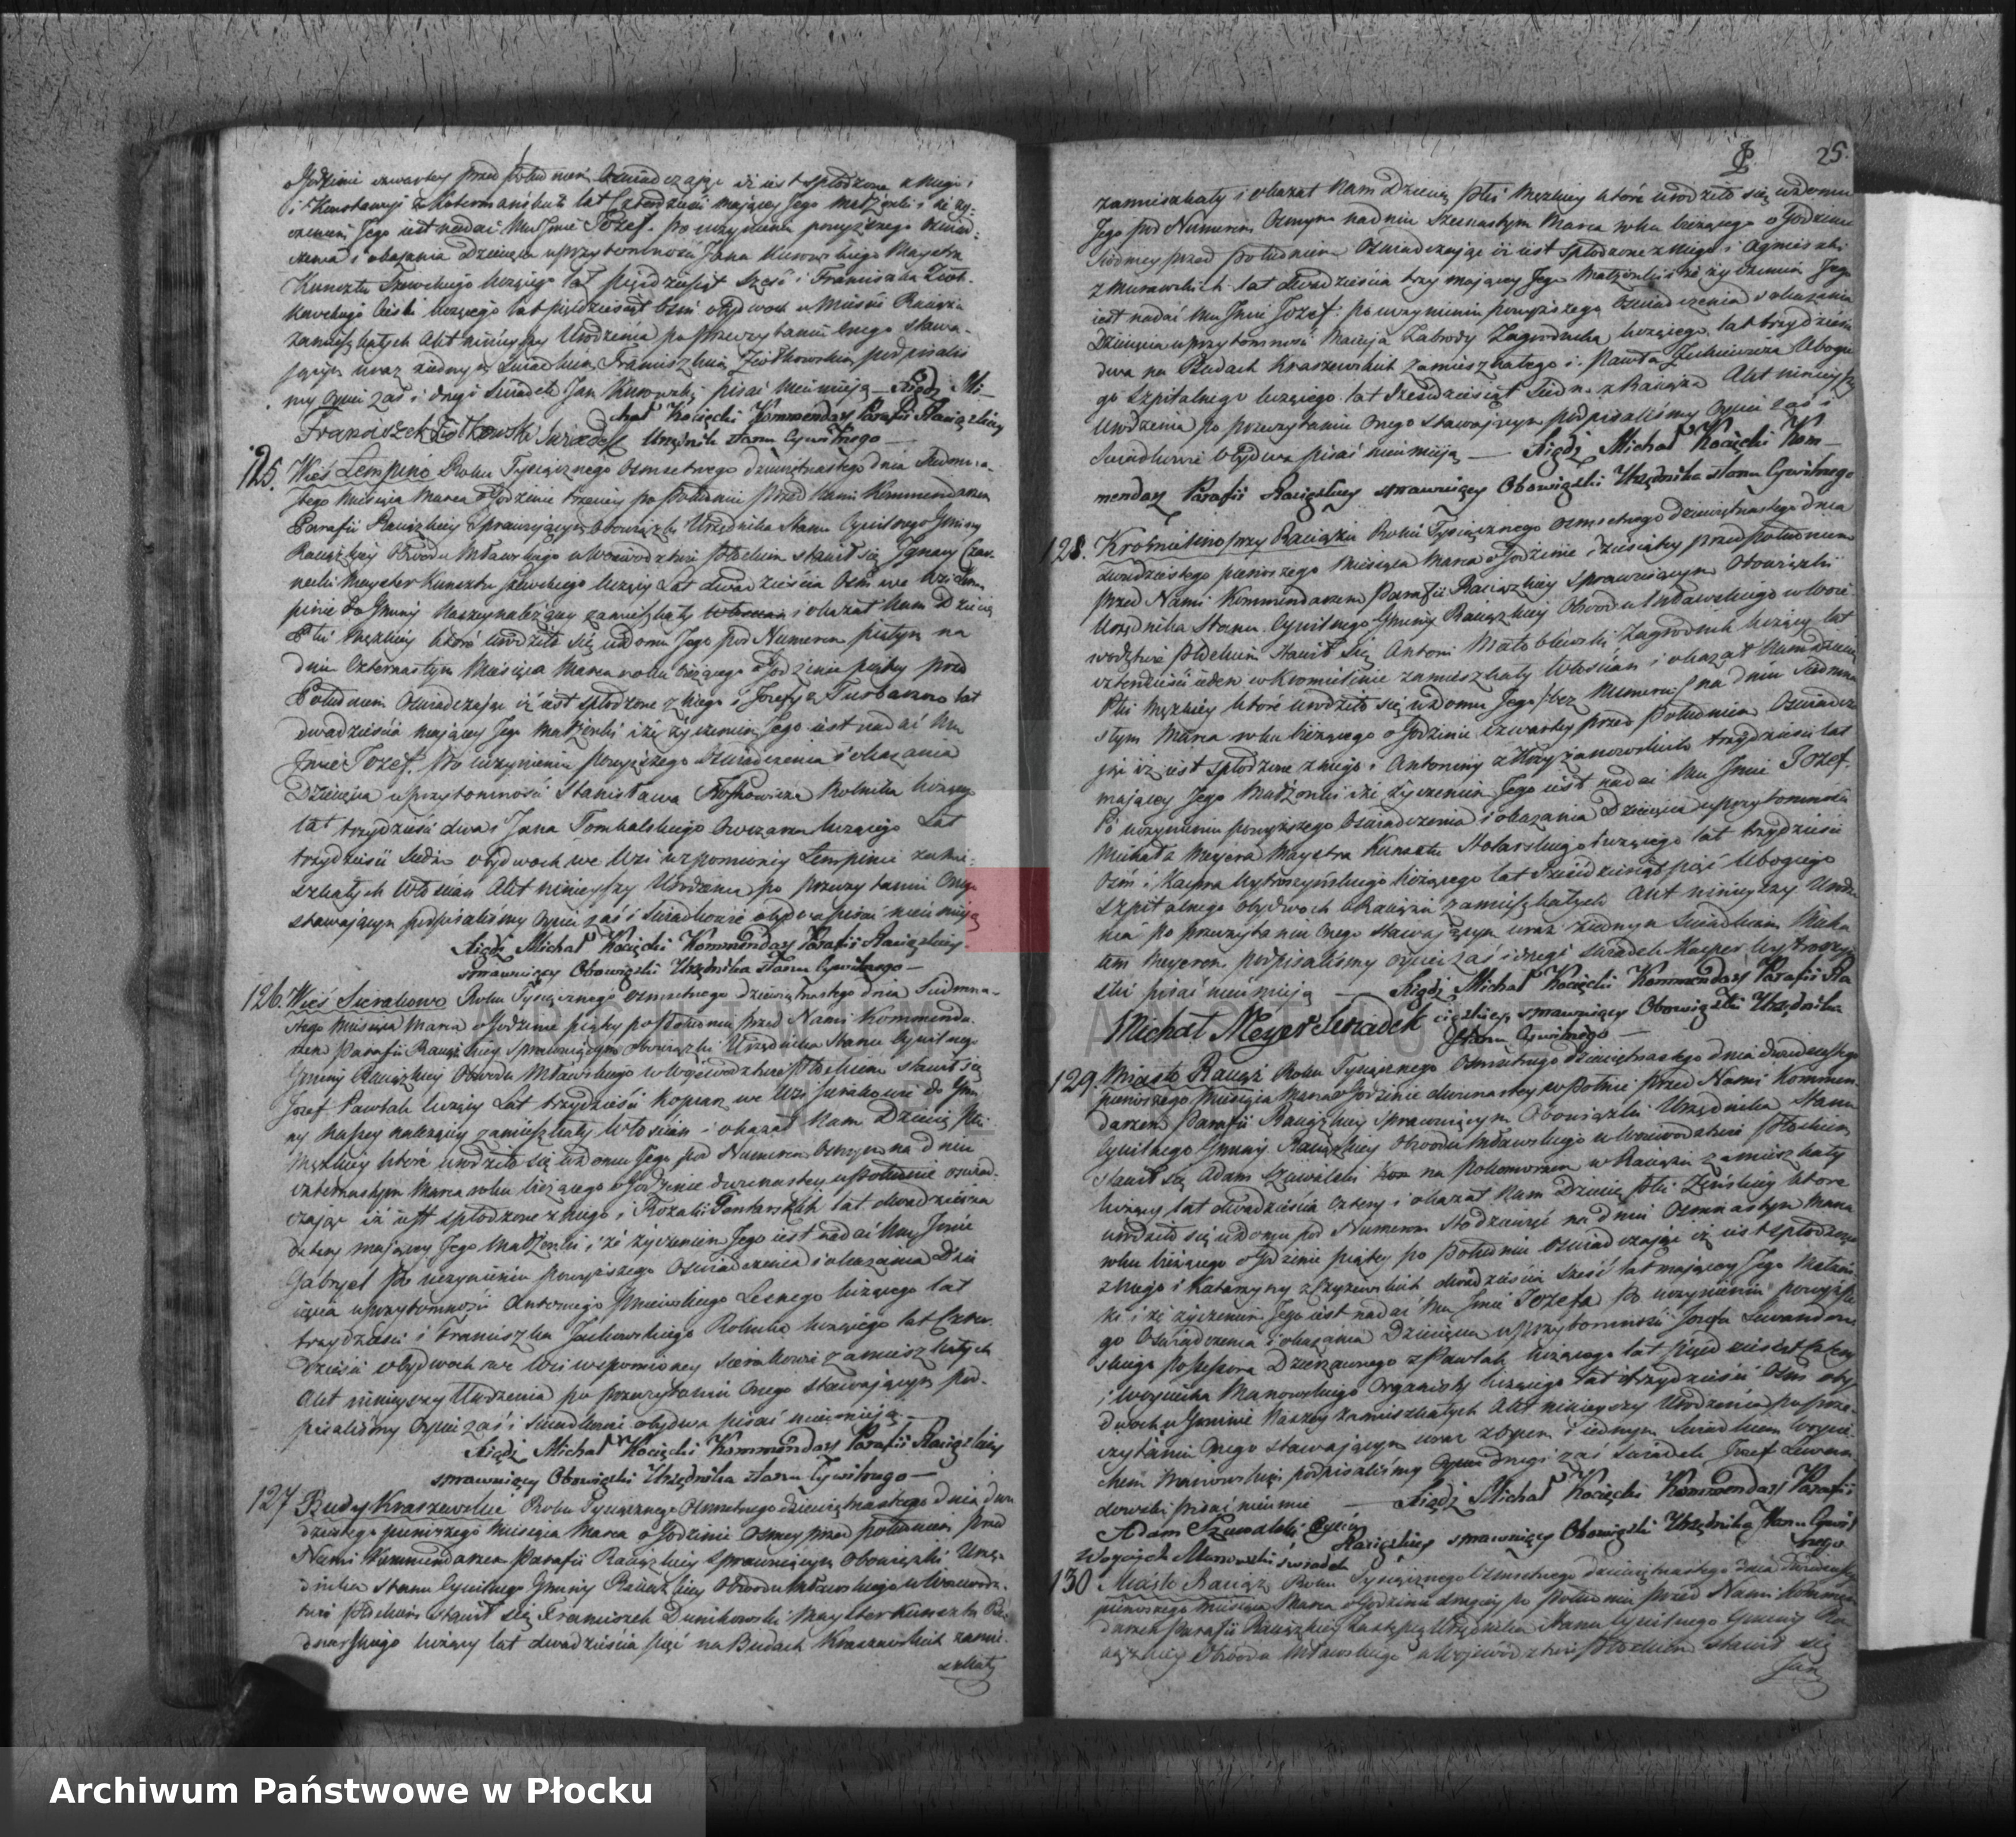 Godzinie czwartey przed Południem Oswiadczaiąc iż iest spłodzone z niego i
i Konstancyi z lat Czterdzieści maiącey Jego Małżonki i że ży-
czeniem Jego iest nadać Mu Jmie Jozef. Po uczynieniu powyższego Oswiad-
czenia i okazania Dziecięcia w przytomności Jana Kurowskiego Maystra
Kunsztu Szewckiego liczącego lat pięćdziesiąt sześć i Franciszka Ziół-
kowskiego liczącego lat pięćdziesiąt ośm obydwoch w Mieście Raciążu
zamieszkałych Akt ninieyszy Urodzenia po przeczytaniu onego stawa-
iącym wraz z iednym Swiadkiem Franciszkiem Ziołkowskim podpisaliś
my Oyciec zaś i drugi Swiadek Jan Kurowski pisać nieumieią — Xiądz Mi-
chał Kocięcki Kommendarz Parafii Raciązkiey
Franciszek Ziołkowski Swiadek Urzędnik stanu Cywilnego —
125. Wieś Lempino Roku Tysiącznego Osmsetnego dziewiętnastego dnia Siedmna-
stego Miesiąca Marca o Godzinie trzeciey po Południu przed Nami Kommendarzem
Parafii Raciązkiey Sprawuiącym Obowiązki Urzędnika Stanu Cywilnego Gminy
Raciązkiey Obwodu Mławskiego w Woiewodztwie Płockim stawił się Jgnacy Czar-
necki Mayster Kunsztu szewckiego liczący Lat dwadzieścia Ośm we Wsi Łem-
pinie do Gminy Naszey należącey zamieszkały i okazał Nam Dziecię
Płci Męzkiey które urodziło się w domu Jego pod Numerem piątym na
dniu Czternastym Miesiąca Marca roku bieżącego o Godzinie piątey przed
Południem Oswiadczaiąc iż iest spłodzone z niego i Jozefy z lat
dwadzieścia maiącey Jego Małżonki i że życzeniem Jego iest nadać Mu
Jmie Jozef. Po uczynieniu powyższego Oswiadczenia i okazania
Dziecięcia w przytomności Stanisława Rolnika liczącego
lat trzydzieści dwa i Jana Tombalskiego Owczarza liczącego Lat
trzydzieści siedm obydwoch we Wsi wzpomnioney Lempinie zamie-
szkałych Włościan Akt ninieyszy Urodzenia po przeczytaniu Onego
stawaiącym podpisaliśmy Oyciec zaś i Swiadkowie obydwa pisać nieumieią
Xiądz Michał Kocięcki Kommendarz Parafii Raciązkiey
sprawuiący Obowiązki Urzędnika stanu Cywilnego —
126. Wieś Sierakowo Roku Tysiącznego osmsetnego dziewiętnastego dnia Siedmna-
stego Miesiąca Marca o Godzinie piątey po Południu przed Nami Kommenda-
rzem Parafii Raciązkiey sprawuiącym obowiązki Urzędnika Stanu Cywilnego
Gminy Raciązkiey Obwodu Mławskiego w Woiewodztwie Płockim stawił się
Jozef Pawlak liczący Lat trzydzieści we Wsi Sierakowie do Gmi
ny Naszey należącey zamieszkały Włościan i okazał Nam Dziecię Płci
Męzkiey które urodziło się w domu Jego pod Numerem Osmym na dniu
czternastym Marca roku bieżącego o Godzinie dwunastey w Południe oswiad-
czaiąc iż iest spłodzone z niego i Rozalii lat dwadzieścia
cztery maiącey Jego Małżonki i że życzeniem Jego iest nadać Mu Jmie
Gabryel Po uczynieniu powyższego Oswiadczenia i okazania Dzie
cięcia w przytomności Antoniego Lesnego liczącego lat
trzydzieści i Franciszka Jackowskiego Rolnika liczącego lat Czter-
dzieści obydwoch we Wsi wspomnioney Sierakowie zamieszkałych
Akt ninieyszy Urodzenia po przeczytaniu Onego stawaiącym pod-
pisaliśmy Oyciec zaś i Swiadkowie obydwa pisać nieumieią —
Xiądz Michał Kocięcki Kommendarz Parafii Raciązkiey
sprawuiący Obowiązki Urzędnika stanu Cywilnego —
127 Budy Kraszewskie Roku Tysiącznego Osmsetnego dziewiętnastego dnia dwu
dziestego pierwszego Miesiąca Marca o Godzinie Osmey przed Południem przed
Nami Kommendarzem Parafii Raciązkiey Sprawuiącym Obowiązki Urzę-
dnika stanu Cywilnego Gminy Raciązkiey Obwodu Mławskiego w Woiewodz-
twie Płockim stawił się Franciszek Dunikowski Mayster Kunsztu Be-
dnarskiego liczący lat dwadzieścia pięć na Budach Kraszewskich zamie-
szkały
25.
zamieszkały i okazał Nam Dziecię Płci Męzkiey które urodziło się w domu
Jego pod Numerem Osmym na dniu Szesnastym Marca roku bieżącego o Godzinie
siodmey przed Południem Oswiadczaiąc iż iest spłodzone z niego i Agnieszki
z Murawskich lat dwadzieścia trzy maiącey Jego Małżonki i że życzeniem Jego
iest nadać Mu Jmie Jozef: po uczynieniu powyższego Oswiadczenia i okazania
Dziecięcia w przytomności Macieia Zabrody Zagrodnika liczącego lat trzydzieści
dwa na Budach Kraszewskich zamieszkałego i Pawła Ubogie
go Szpitalnego liczącego lat sześćdziesiąt siedm z Raciąża Akt ninieyszy
Urodzenia po przeczytaniu Onego stawaiącym podpisaliśmy Oyciec zaś i
Swiadkowie obydwa pisać nieumieią — Xiądz Michał Kocięcki Kom-
mendarz Parafii Raciązkiey sprawuiący Obowiązki Urzędnika stanu Cywilnego
128. Kromielino przy Raciążu Roku Tysiącznego osmsetnego dziewiętnastego dnia
dwudziestego pierwszego Miesiąca Marca o Godzinie dziesiątey przed Południem
przed Nami Kommendarzem Parafii Raciązkiey sprawuiącym Obowiązki
Urzędnika Stanu Cywilnego Gminy Raciązkiey Obwodu Mławskiego w Woie-
wodztwie Płockim stawił się Antoni Zagrodnik liczący lat
czterdzieści ieden w Kromielinie zamieszkały Włościan i okazał Nam Dziecię
Płci Męzkiey które urodziło się w domu Jego /:bez Numeru:/ na dniu Siedmna
stym Marca roku bieżącego o Godzinie Czwartey przed Południem Oswiadcza
iąc iż iest spłodzone z niego i Antoniny z Krzyżanowskich trzydzieści lat
maiącey Jego Małżonki i że życzeniem Jego iest nadać Mu Jmie Jozef.
Po uczynieniu powyższego Oswiadczenia i okazania Dziecięcia w przytomności
Michała Meyera Maystra Kunsztu Stolarskiego liczącego lat trzydzieści
ośm i Kacpra liczącego lat Sześćdziesiąt pięć Ubogiego
Szpitalnego Obydwoch w Raciążu zamieszkałych Akt ninieyszy Urodze
nia po przeczytaniu Onego stawaiącym wraz z iednym Swiadkiem Micha
łem Meyerem podpisaliśmy oyciec zaś i drugi Swiadek Kasper
ski pisać nieumieią — Xiądz Michał Kocięcki Kommendarz Parafii Ra
Michał Meyer Swiadek ciązkiey sprawuiący Obowiązki Urzędnika
Stanu Cywilnego —
129. Miasto Raciąż Roku Tysiącznego Osmsetnego dziewiętnastego dnia dwudziestego
pierwszego Miesiąca Marca o Godzinie dwunastey w Południe przed Nami Kommen
darzem Parafii Raciązkiey Sprawuiącym Obowiązki Urzędnika Stanu
Cywilnego Gminy Raciązkiey Obwodu Mławskiego w Woiewodztwie Płockim
stawił się Adam na Pokomornem w Raciążu zamieszkały
liczący lat dwadzieścia cztery i okazał Nam Dziecię Płci Żeńskiey które
urodziło się w domu pod Numerem Stodziewięć na dniu Osmnastym Marca
roku bieżącego o Godzinie piątey po Południu Oswiadczaiąc iż iest spłodzone
z niego i Katarzyny z dwadzieścia sześć lat maiącey Jego Małżon
ki i że życzeniem Jego iest nadać Mu Jmie Jozefa Po uczynieniu powyższe
go Oswiadczenia i okazania Dziecięcia w przytomności Jozefa Lewandow
skiego Possessora Dzierzawnego z Pawłak liczącego lat pięćdziesiąt
i Woyciecha Manowskiego Organisty liczącego lat trzydzieści ośm oby
dwoch w Gminie Naszey zamieszkałych Akt ninieyszy Urodzenia po prze-
czytaniu Onego stawaiącym wraz z Oycem i iednym Swiadkiem Woycie
chem Manowskim podpisaliśmy drugi zaś Swiadek Jozef Lewan
dowski pisać nieumie — Xiądz Michał Kocięcki Kommendarz Parafii
Adam Oyciec Raciązkiey sprawuiący Obowiązki Urzędnika Stanu Cywil
nego
Woyciech Manowski swiadek
130 Miasto Raciąż Roku Tysiącznego Osmsetnego dziewiętnastego dnia dwudziestego
pierwszego Miesiąca Marca o Godzinie drugiey po Południu przed Nami Kommen
darzem Parafii Raciązkiey Urzędnika Stanu Cywilnego Gminy Ra
ciązkiey Obwodu Mławskiego w Woiewodztwie Płockim stawił się
Jan
ARCHIWUM PAŃSTWOWE
W PŁOCKU
Archiwum Państwowe w Płocku